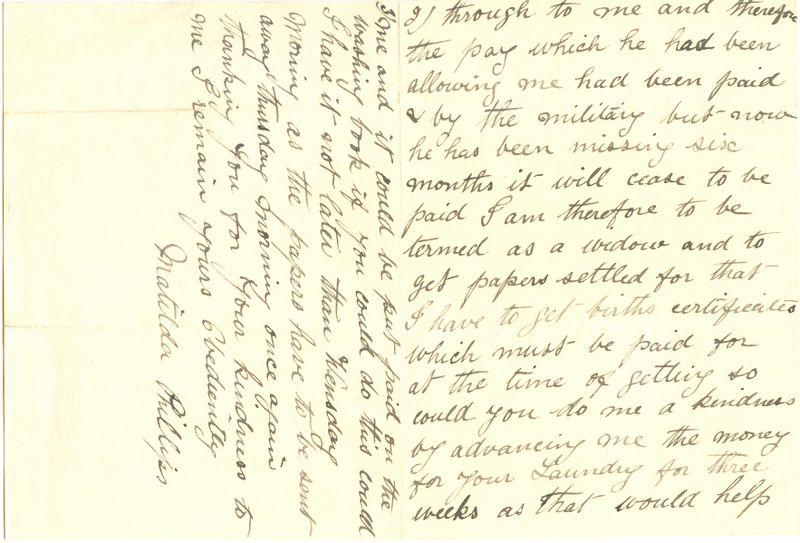 2) through to me and therefore
the pay which he had been
allowing me had been paid
& by the military but now
he has been missing six
months it will cease to be
paid I am therefore to be
termed as a widow and to
get papers settled for that
I have to get births certificates
which must be paid for
at the time of getting so
could you do me a kindness
by advancing me the money
for your Laundry for three
weeks as that would help
me and it could be put paid on the
washing book if you could do this could
I have it not later than Wensday
Moring as the papers have to be sent
away thusday morning once again
thanking you for your kindness to
me I remain yours Obediently
Matilda Phillips